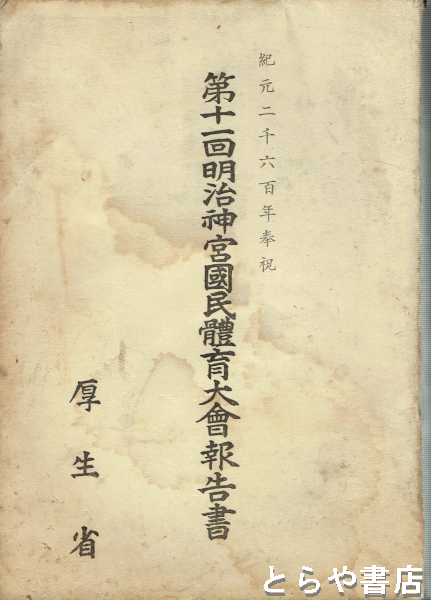 紀元二千六百年奉祝
第十一回明治神宮國民體育大會報告書
厚生省
とらや書店